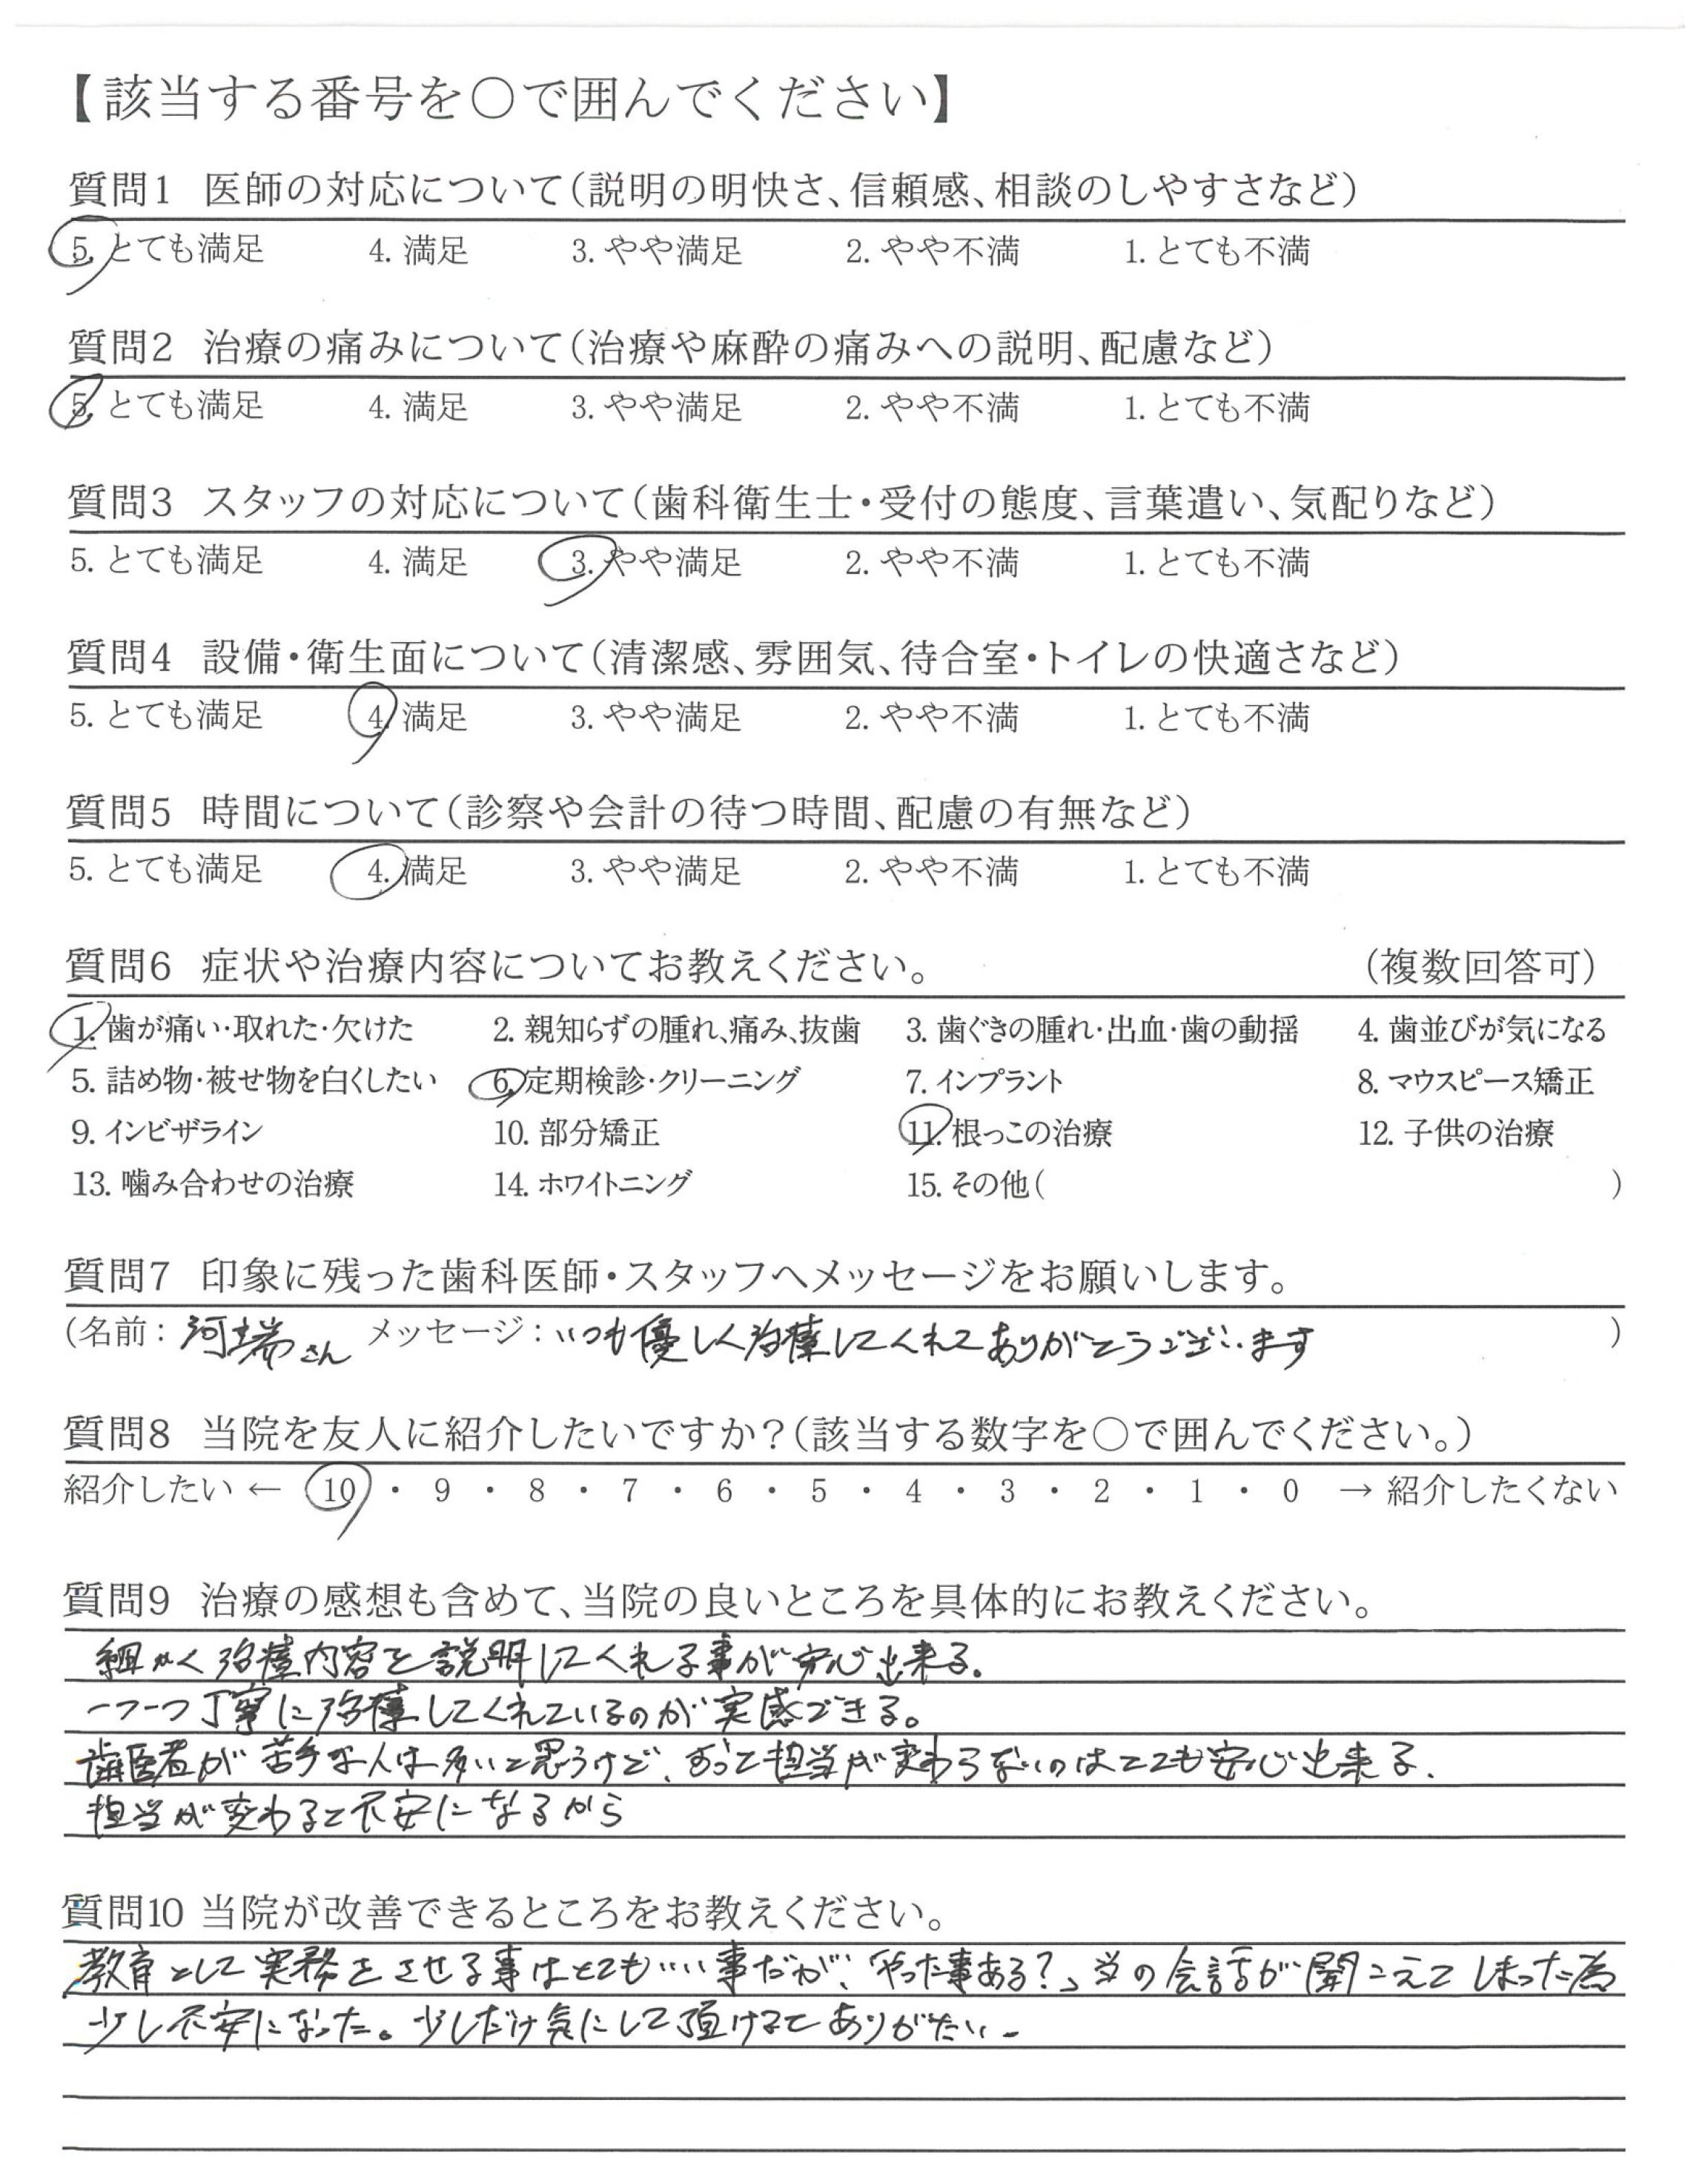 【該当する番号を○で囲んでください】
質問1 医師の対応について(説明の明快さ、信頼感、相談のしやすさなど)
5. とても満足 4. 満足 3. やや満足 2. やや不満 1. とても不満
質問2 治療の痛みについて(治療や麻酔の痛みへの説明、配慮など)
5. とても満足 4. 満足 3. やや満足 2. やや不満 1. とても不満
質問3 スタッフの対応について(歯科衛生士・受付の態度、言葉遣い、気配りなど)
5. とても満足 4. 満足 3. やや満足 2. やや不満 1. とても不満
質問4 設備・衛生面について(清潔感、雰囲気、待合室・トイレの快適さなど)
5. とても満足 4. 満足 3. やや満足 2. やや不満 1. とても不満
質問5 時間について(診察や会計の待つ時間、配慮の有無など)
5. とても満足 4. 満足 3. やや満足 2. やや不満 1. とても不満
質問6 症状や治療内容についてお教えください。 (複数回答可)
1. 歯が痛い・取れた・欠けた 2. 親知らずの腫れ、痛み、抜歯 3. 歯ぐきの腫れ・出血・歯の動揺 4. 歯並びが気になる
5. 詰め物・被せ物を白くしたい 6. 定期検診・クリーニング 7. インプラント 8. マウスピース矯正
9. インビザライン 10. 部分矯正 11. 根っこの治療 12. 子供の治療
13. 噛み合わせの治療 14. ホワイトニング 15. その他( )
質問7 印象に残った歯科医師・スタッフへメッセージをお願いします。
(名前: 河端さん メッセージ: いつも優しく治療してくれてありがとうございます )
質問8 当院を友人に紹介したいですか?(該当する数字を○で囲んでください。)
紹介したい ← 10 ・ 9 ・ 8 ・ 7 ・ 6 ・ 5 ・ 4 ・ 3 ・ 2 ・ 1 ・ 0 → 紹介したくない
質問9 治療の感想も含めて、当院の良いところを具体的にお教えください。
細かく治療内容を説明してくれる事が安心出来る。
一つ一つ丁寧に治療してくれているのが実感できる。
歯医者が苦手な人は多いと思うけど、ずっと担当が変わらないのはとても安心出来る.
担当が変わると不安になるから
質問10 当院が改善できるところをお教えください。
教育として実務をさせる事はとてもいい事だが、「やった事ある?」等の会話が聞こえてしまった為
少し不安になった。少しだけ気にして頂けるとありがたい.